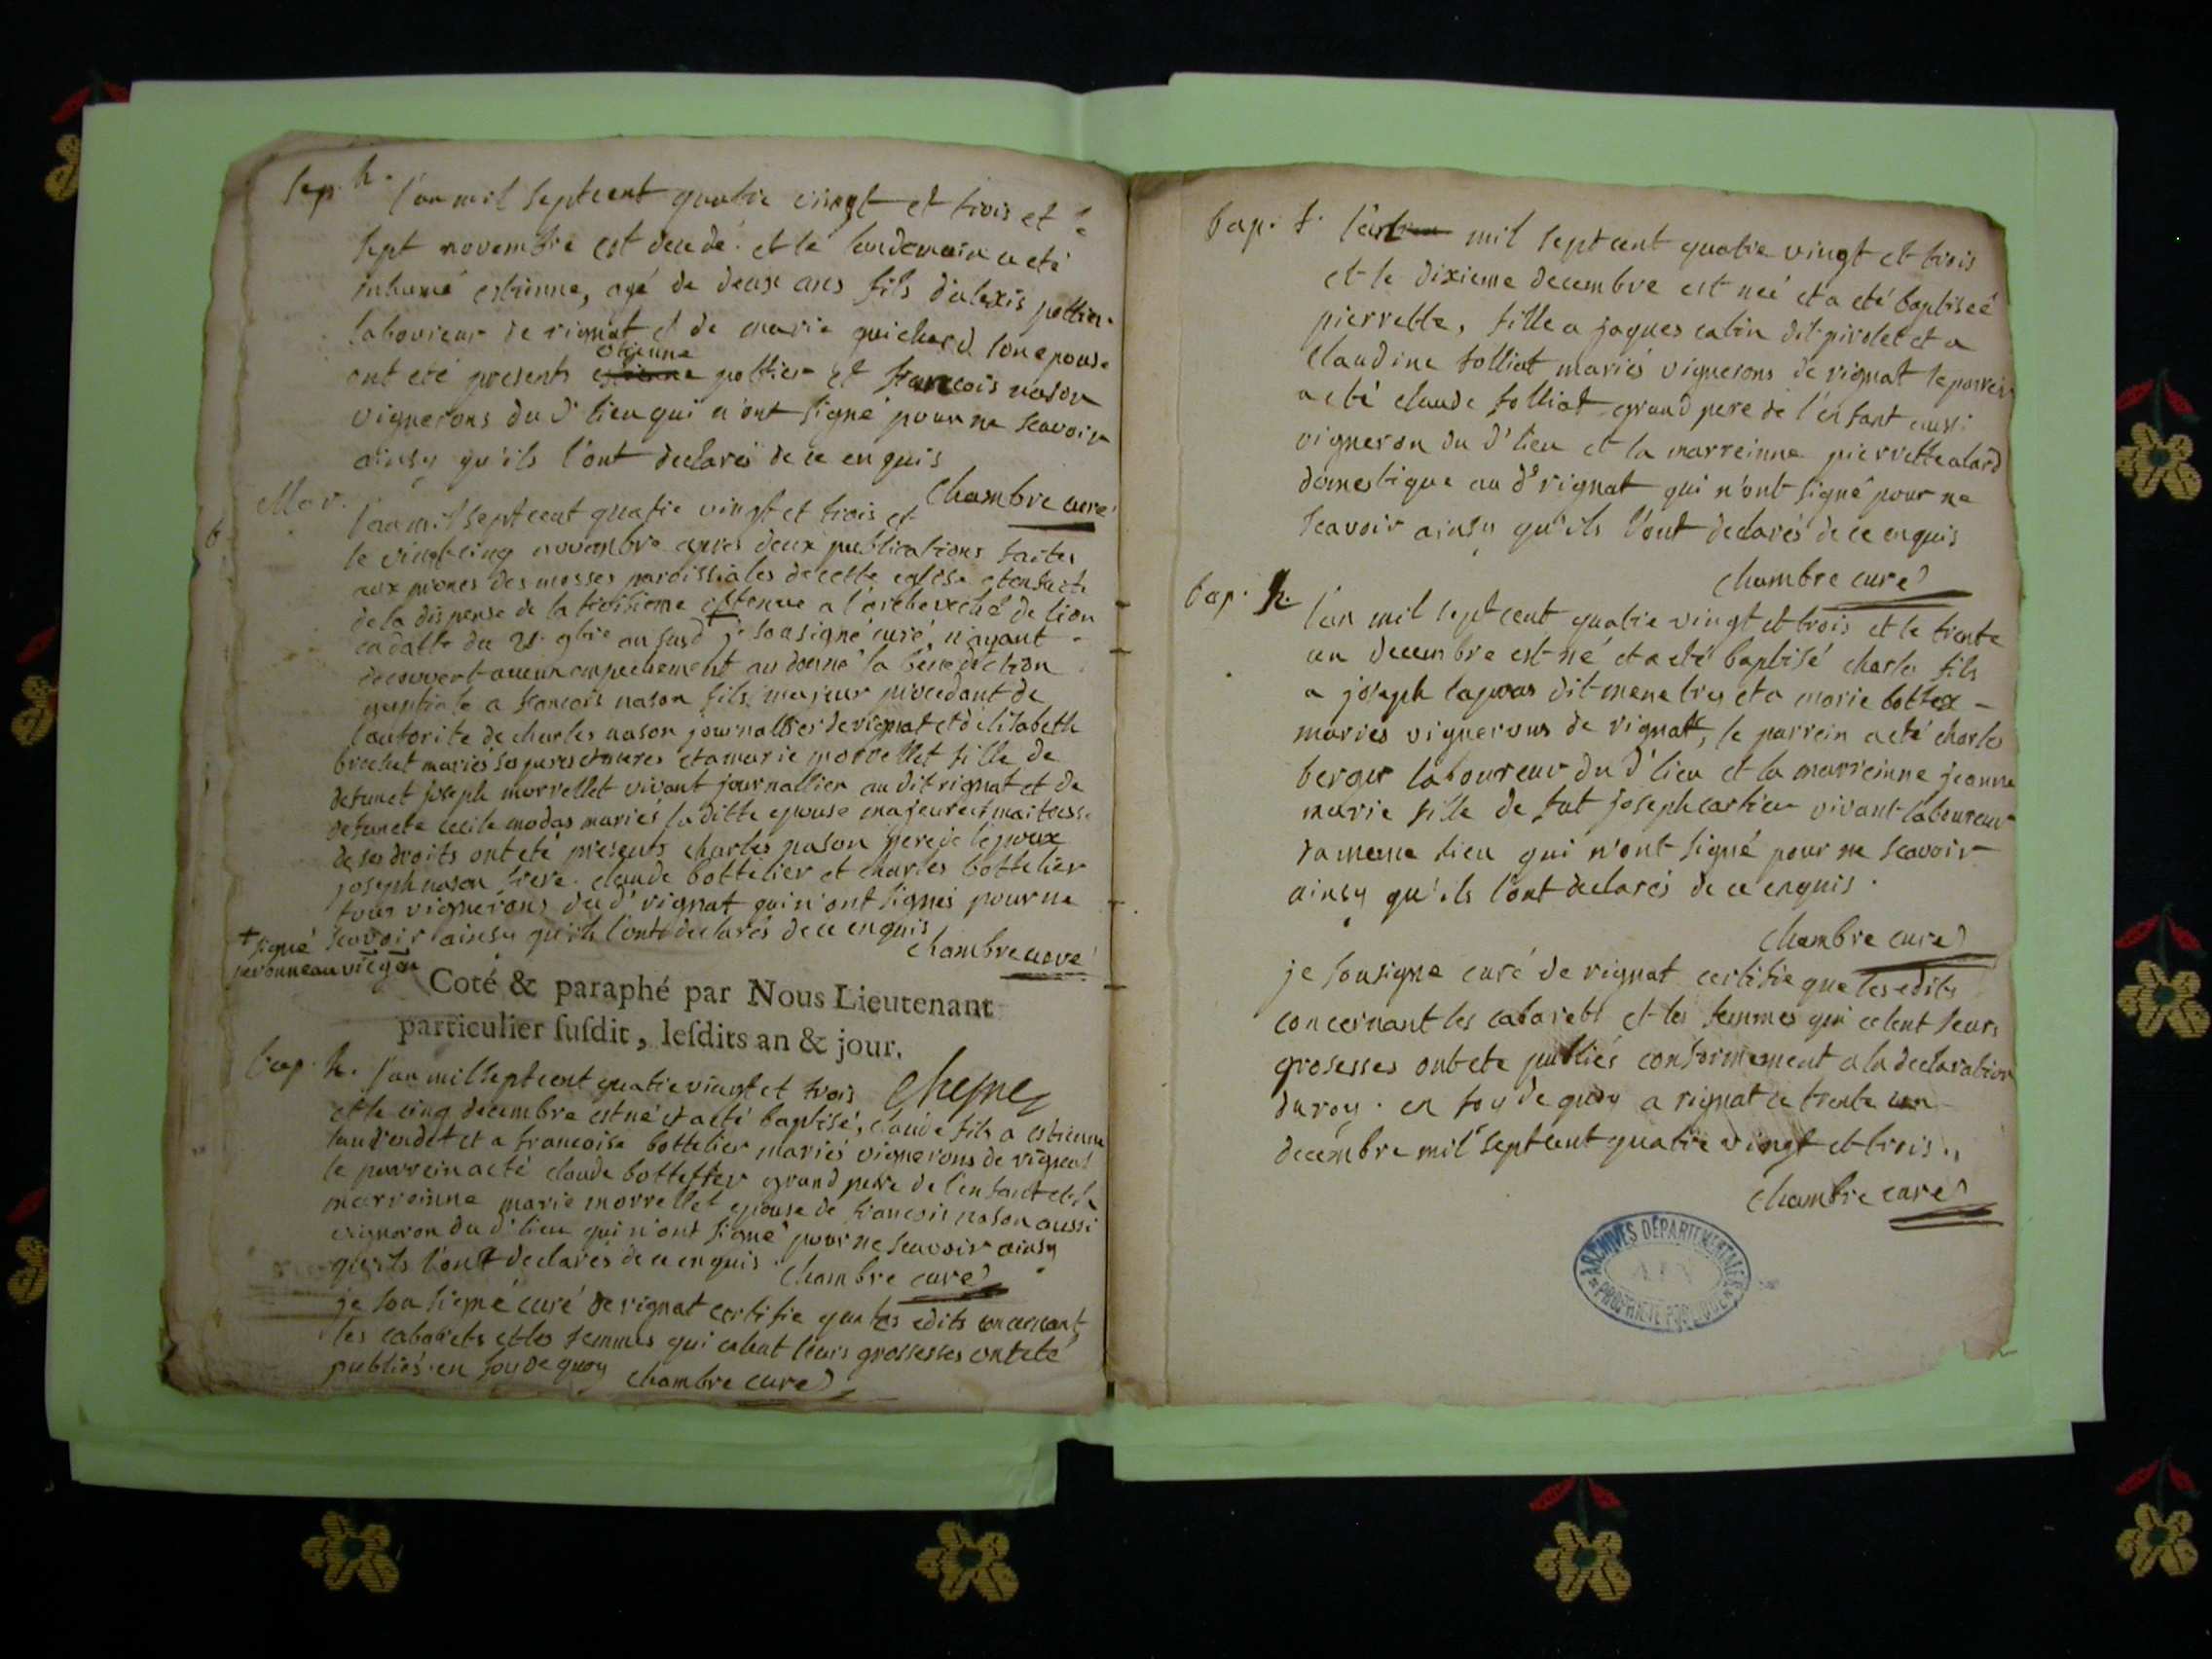 Sep. h. l'an mil septcent quatre vingt et trois et le
sept novembre est decedé et le lendemain a eté
inhumé estienne, agé de deux ans fils d'alexis pottier
laboureur de rignat et de marie guichard son epouse
etienne
ont eté presents pottier et francois nason
vignerons du d' lieu qui n'ont signé pour ne scavoir
ainsy qu'ils l'ont declarés de ce enquis
chambre curé
Mar. l'an mil septcent quatre vingt et trois et
le vingt cinq novembre apres deux publications faites
aux prones des messes paroissiales de cette eglise et ensuite
de la dispense de la troisieme obtenue a l'archeveché de lion
en datte du 21 9bre an susd + je sousigné curé, n'ayant
decouvert aucun empechement ai donné la benediction
nuptiale a francois nason fils majeur procedant de
l'autorite de charles nason journallier de rignat et d'elisabeth
brochet mariés ses peres et meres et a marie morrellet fille de
defunct joseph morrellet vivant journallier au dit rignat et de
defuncte cecile modas mariés la ditte epouse majeure et maitresse
de ses droits ont eté presents charles nason pere de l'epoux
joseph nason frere claude bottelier et charles bottelier
tous vignerons du d' rignat qui n'ont signés pour ne
scavoir ainsy qu'ils l'ont declarés de ce enquis
chambre curé
+ signé
Coté & paraphé par Nous Lieutenant
particulier ſuſdit, leſdits an & jour.
bap. h. l'an mil septcent quatre vingt et trois
et le cinq decembre est né et a eté baptisé, claude fils a estienne
et a francoise bottelier mariés vignerons de rignat
le parrein a eté claude bottellier grand pere de l'enfant et la
marreinne marie morrellet epouse de francois nason aussi
vigneron du d' lieu qui n'ont signé pour ne scavoir ainsy
qu'ils l'ont declarés de ce enquis
chambre curé
je sousigné curé de rignat certifie que les edits concernant
les cabarets et les femmes qui celent leurs grossesses ont eté
publiés en foy de quoy chambre curé
bap. f. l'an mil septcent quatre vingt et trois
et le dixieme decembre est neé et a eté baptiseé
pierrette, fille a jaques catin dit pirolet et a
claudine folliat mariés vignerons de rignat le parrein
a eté claude folliat grand pere de l'enfant aussi
vigneron du d' lieu et la marreinne pierrette alard
domestique au d' rignat qui n'ont signé pour ne
scavoir ainsy qu'ils l'ont declarés de ce enquis
chambre curé
bap. h. l'an mil septcent quatre vingt et trois et le trente
un decembre est né et a eté baptisé charles fils
a joseph dit menetres et a marie bottex
mariés vignerons de rignat, le parrein a eté charles
berger laboureur du d' lieu et la marreinne jeanne
marie fille de fut joseph cartier vivant laboureur
du meme lieu qui n'ont signé pour ne scavoir
ainsy qu'ils l'ont declarés de ce enquis.
chambre curé
je sousigne curé de rignat certifie que les edits
concernant les cabarets et les femmes qui celent leurs
grosesses ont ete publiés conformement a la declaration
du roy. en foy de quoy a rignat ce trente un
decembre mil septcent quatre vingt et trois.,
chambre curé
ARCHIVES DÉPARTEMENTALES
AIN
PROPRIÉTÉ PUBLIQUE